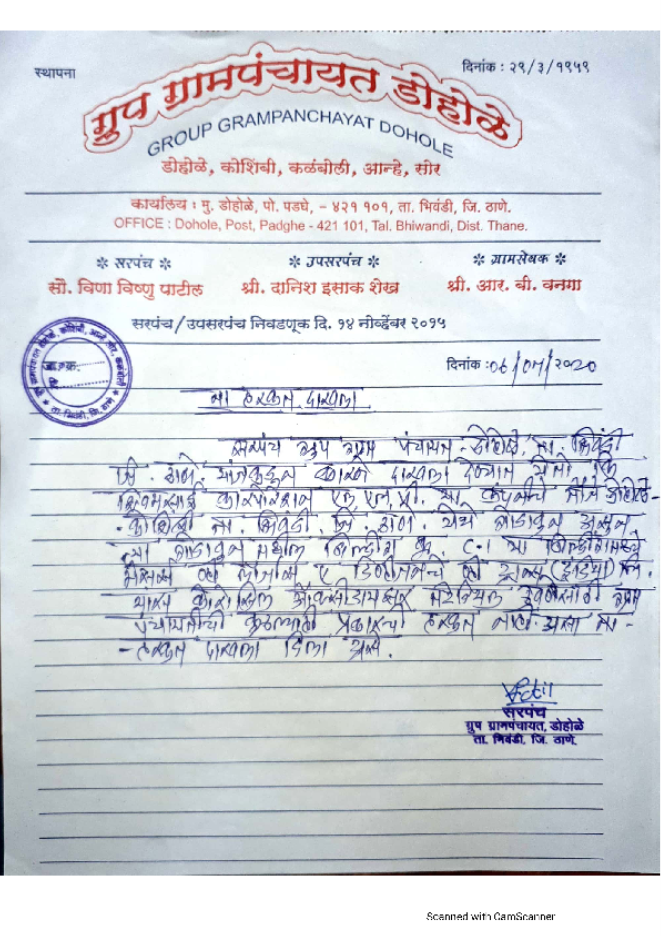 स्थापना
दिनांक : २९/३/१९५९
ग्रुप ग्रामपंचायत डोहोळे
GROUP GRAMPANCHAYAT DOHOLE
डोहोळे, कोशिंबी, कळंबोली, आन्हे, सोर
कार्यालय : मु. डोहोळे, पो. पडघे, – ४२१ १०१, ता. भिवंडी, जि. ठाणे.
OFFICE : Dohole, Post, Padghe - 421 101, Tal. Bhiwandi, Dist. Thane.
सरपंच
उपसरपंच
ग्रामसेवक
सौ. विणा विष्णु पाटील
श्री. दानिश इसाक शेख
श्री. आर. बी. वनगा
सरपंच/उपसरपंच निवडणूक दि. १४ नोव्हेंबर २०१५
जा.क्र.
ता. भिवंडी, जि. ठाणे
दिनांक : 06/07/2020
ना हरकत दाखला
सरपंच ग्रुप ग्राम पंचायत डोहोळे, ता. भिवंडी
जि. ठाणे यांजकडून कारणे दाखला देण्यात येतो कि
कार्पोरेशन एल.एल.पी. या कंपनीचे मौजे डोहोळे-
कोशिंबी ता. भिवंडी. जि. ठाणे. येथे गोडावुन असुन
त्या गोडावुन मधील बिल्डींग क्र. C-1 या बिल्डींगमध्ये
मेसर्स ए डिव्हीजनचे (इंडिया)
यास मटेरियल ठेवणेसाठी ग्राम
पंचायतीची कुठल्याही प्रकारची हरकत नाही असा ना-
-हरकत दाखला दिला असे.
सरपंच
ग्रुप ग्रामपंचायत, डोहोळे
ता. भिवंडी, जि. ठाणे.
Scanned with CamScanner